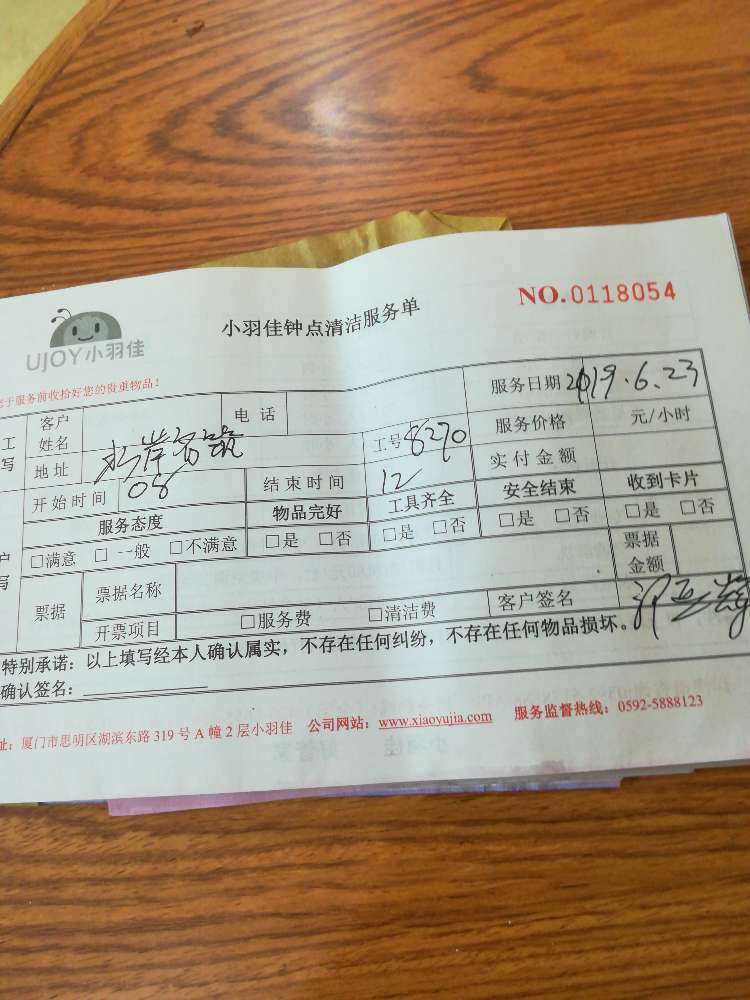 UJOY小羽佳
小羽佳钟点清洁服务单
NO.0118054
于服务前收拾好您的贵重物品！
工
写
客户
姓名
电话
服务日期 2019.6.23
地址
工号 8270
服务价格 元/小时
开始时间 08
结束时间 12
实付金额
服务态度 物品完好 工具齐全 安全结束 收到卡片
□满意 □一般 □不满意 □是 □否 □是 □否 □是 □否 □是 □否
户
写
票据
票据名称
票据
金额
开票项目 □服务费 □清洁费 客户签名
特别承诺：以上填写经本人确认属实，不存在任何纠纷，不存在任何物品损坏。
确认签名：
址：厦门市思明区湖滨东路319号A幢2层小羽佳 公司网站：www.xiaoyujia.com 服务监督热线：0592-5888123